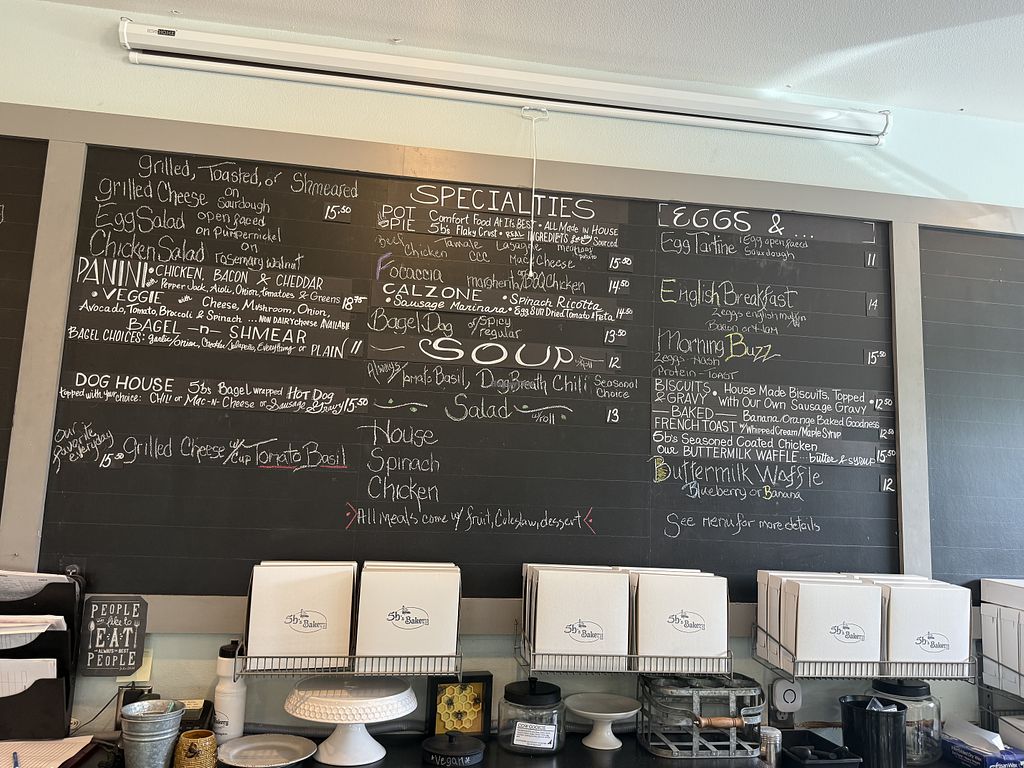 Grilled, Toasted, or Shmeared
grilled Cheese on Sourdough 15.50
Egg Salad open faced on Pumpernickel
Chicken Salad on rosemary walnut
PANINI • CHICKEN, BACON & CHEDDAR
Pepper Jack, Aioli, Onion, tomatoes & Greens
• VEGGIE with Cheese, Mushroom, Onion, 18.75
Avocado, Tomato, Broccoli & Spinach
BAGEL -n- SHMEAR
BAGEL CHOICES: garlic/onion, Everything or PLAIN 11
DOG HOUSE 5b's Bagel wrapped HOT DOG
topped with your choice: CHILI or MAC-N-CHEESE or Sausage Gravy 15.50
our favorite everyday
15.50 Grilled Cheese w/ Cup Tomato Basil
SPECIALTIES
POT PIE Comfort Food At Its BEST • ALL Made in HOUSE
5b's Flaky Crust • REAL INGREDIENTS Sourced
Beef Tamale Lasagne
Chicken CCC Mac Cheese 15.50
Focaccia margherita, BBQ Chicken 14.50
CALZONE • Spinach Ricotta
• Sausage Marinara • Egg Sun Dried Tomato & Feta 14.50
Bagel Dog w/ Spicy / regular 13.50
SOUP 12
Always Tomato Basil, Dog Breath Chili Seasonal Choice
Salad w/roll 13
House
Spinach
Chicken
All meals come w/ fruit, Coleslaw, dessert
[EGGS &...]
Egg Tartine 1 egg open faced Sourdough 11
English Breakfast 14
2 eggs english muffin
Bacon or Ham
Morning Buzz 15.50
2 eggs - Hash
Protein - Toast
BISCUITS & GRAVY • House Made Biscuits, Topped with Our Own Sausage Gravy • 12.50
—BAKED— FRENCH TOAST Banana/Orange Baked Goodness
w/ Whipped Cream/Maple Syrup 12.50
5b's Seasoned Coated Chicken
Our BUTTERMILK WAFFLE... butter & syrup 15.50
Buttermilk Waffle 12
Blueberry or Banana
See menu for more details
PEOPLE who like to EAT ARE ALWAYS the BEST PEOPLE
5b's Bakery
5b's Bakery
5b's Bakery
5b's Bakery
5b's Bakery
5b's Bakery
Vegan